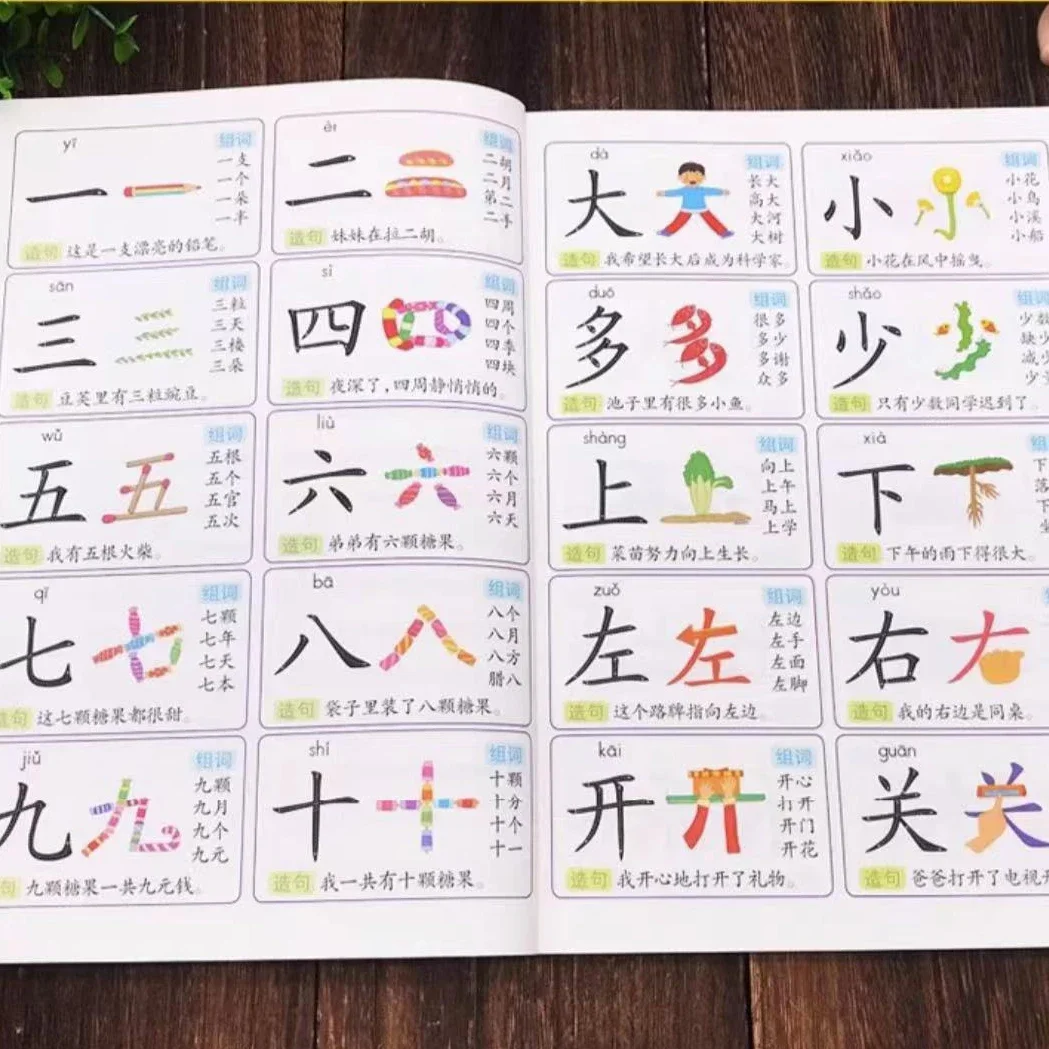 yī
一
组词
一支
一个
一朵
一半
造句 这是一支漂亮的铅笔。
èr
二
组词
二胡
二月
第二
二手
造句 妹妹在拉二胡。
sān
三
组词
三粒
三天
三楼
三朵
造句 豆荚里有三粒豌豆。
sì
四
组词
四周
四个
四季
四块
造句 夜深了，四周静悄悄的。
wǔ
五
组词
五根
五个
五官
五次
造句 我有五根火柴。
liù
六
组词
六颗
六个
六月
六天
造句 弟弟有六颗糖果。
qī
七
组词
七颗
七年
七天
七本
造句 这七颗糖果都很甜。
bā
八
组词
八个
八月
八方
腊八
造句 袋子里装了八颗糖果。
jiǔ
九
组词
九颗
九月
九个
九元
句 九颗糖果一共九元钱。
shí
十
组词
十颗
十分
十个
十一
造句 我一共有十颗糖果。
dà
大
组词
长大
高大
大河
大树
造句 我希望长大后成为科学家。
xiǎo
小
组词
小花
小鸟
小溪
小船
造句 小花在风中摇曳。
duō
多
组词
很多
多少
多谢
众多
造句 池子里有很多小鱼。
shǎo
少
组词
少数
缺少
减少
少
造句 只有少数同学迟到了。
shàng
上
组词
向上
上午
马上
上学
造句 菜苗努力向上生长。
xià
下
组
下
落
下
造句 下午的雨下得很大。
zuǒ
左
组词
左边
左手
左面
左脚
造句 这个路牌指向左边。
yòu
右
造句 我的右边是同桌。
kāi
开
组词
开心
打开
开门
开花
造句 我开心地打开了礼物。
guān
关
造句 爸爸打开了电视